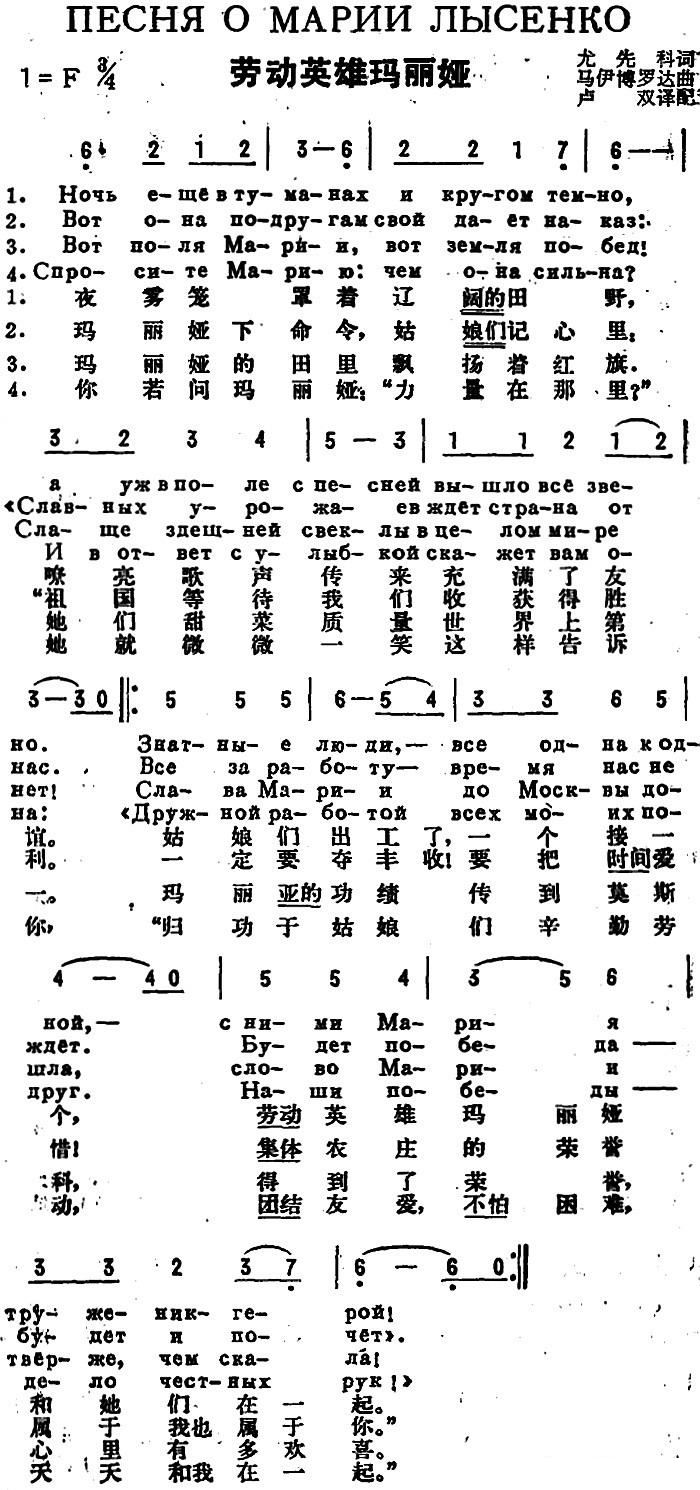 ПЕСНЯ О МАРИИ ЛЫСЕНКО
劳动英雄玛丽娅
1=F 3/4
尤先科词
马伊博罗达曲
卢双译配
6· 2 1 2 | 3—6 | 2 2 1 7 | 6—— |
1. Ночь е-щё в ту-ма-нах и кру-гом тем-но,
2. Вот о-на по-дру-гам свой да-ёт на-каз:
3. Вот по-ля Ма-ри-и, вот зем-ля по-бед!
4. Спро-си-те Ма-ри-ю: чем о-на силь-на?
1. 夜雾笼罩着辽阔的田野,
2. 玛丽娅下命令,姑娘们记心里,
3. 玛丽娅的田里飘扬着红旗.
4. 你若问玛丽娅:“力量在那里?”
3 2 3 4 | 5—3 | 1 1 2 1 2 |
а уж в по-ле с пе-сней вы-шло всё зве-
«Слав-ных у-ро-жа-ев ждёт стра-на от
Сла-ще здеш-ней свек-лы в це-лом ми-ре
И в от-вет с у-лыб-кой ска-жет вам о-
嘹亮歌声传来充满了友
“祖国等待我们收获得胜
她们甜菜质量世界上第
她就微微一笑这样告诉
3—3 0 :|| 5 5 5 | 6—5 4 | 3 3 6 5 |
но. Знат-ны-е лю-ди,— все од-на к од-
нас. Все за ра-бо-ту— вре-мя нас не
нет! Сла-ва Ма-ри-и до Моск-вы до-
на: «Друж-ной ра-бо-той всех мо-их по-
谊。姑娘们出工了,一个接一
利。一定要夺丰收!要把时间爱
一。玛丽亚的功绩传到莫斯
你,“归功于姑娘们辛勤劳
4—4 0 | 5 5 4 | 3 5 6 |
ной,— с ни-ми Ма-ри-я
ждёт. Бу-дет по-бе-да —
шла, сло-во Ма-ри-и
друг. На-ши по-бе-ды —
个,劳动英雄玛丽娅
惜!集体农庄的荣誉
科,得到了荣誉,
动,团结友爱,不怕困难,
3 3 2 3 7 | 6—6 0 :||
тру-же-ник-ге-рой!
бу-дет и по-чёт».
твёр-же, чем ска-ла!
де-ло чест-ных рук!»
和她们在一起。
属于我也属于你。”
心里有多欢喜。
天天和我在一起。”